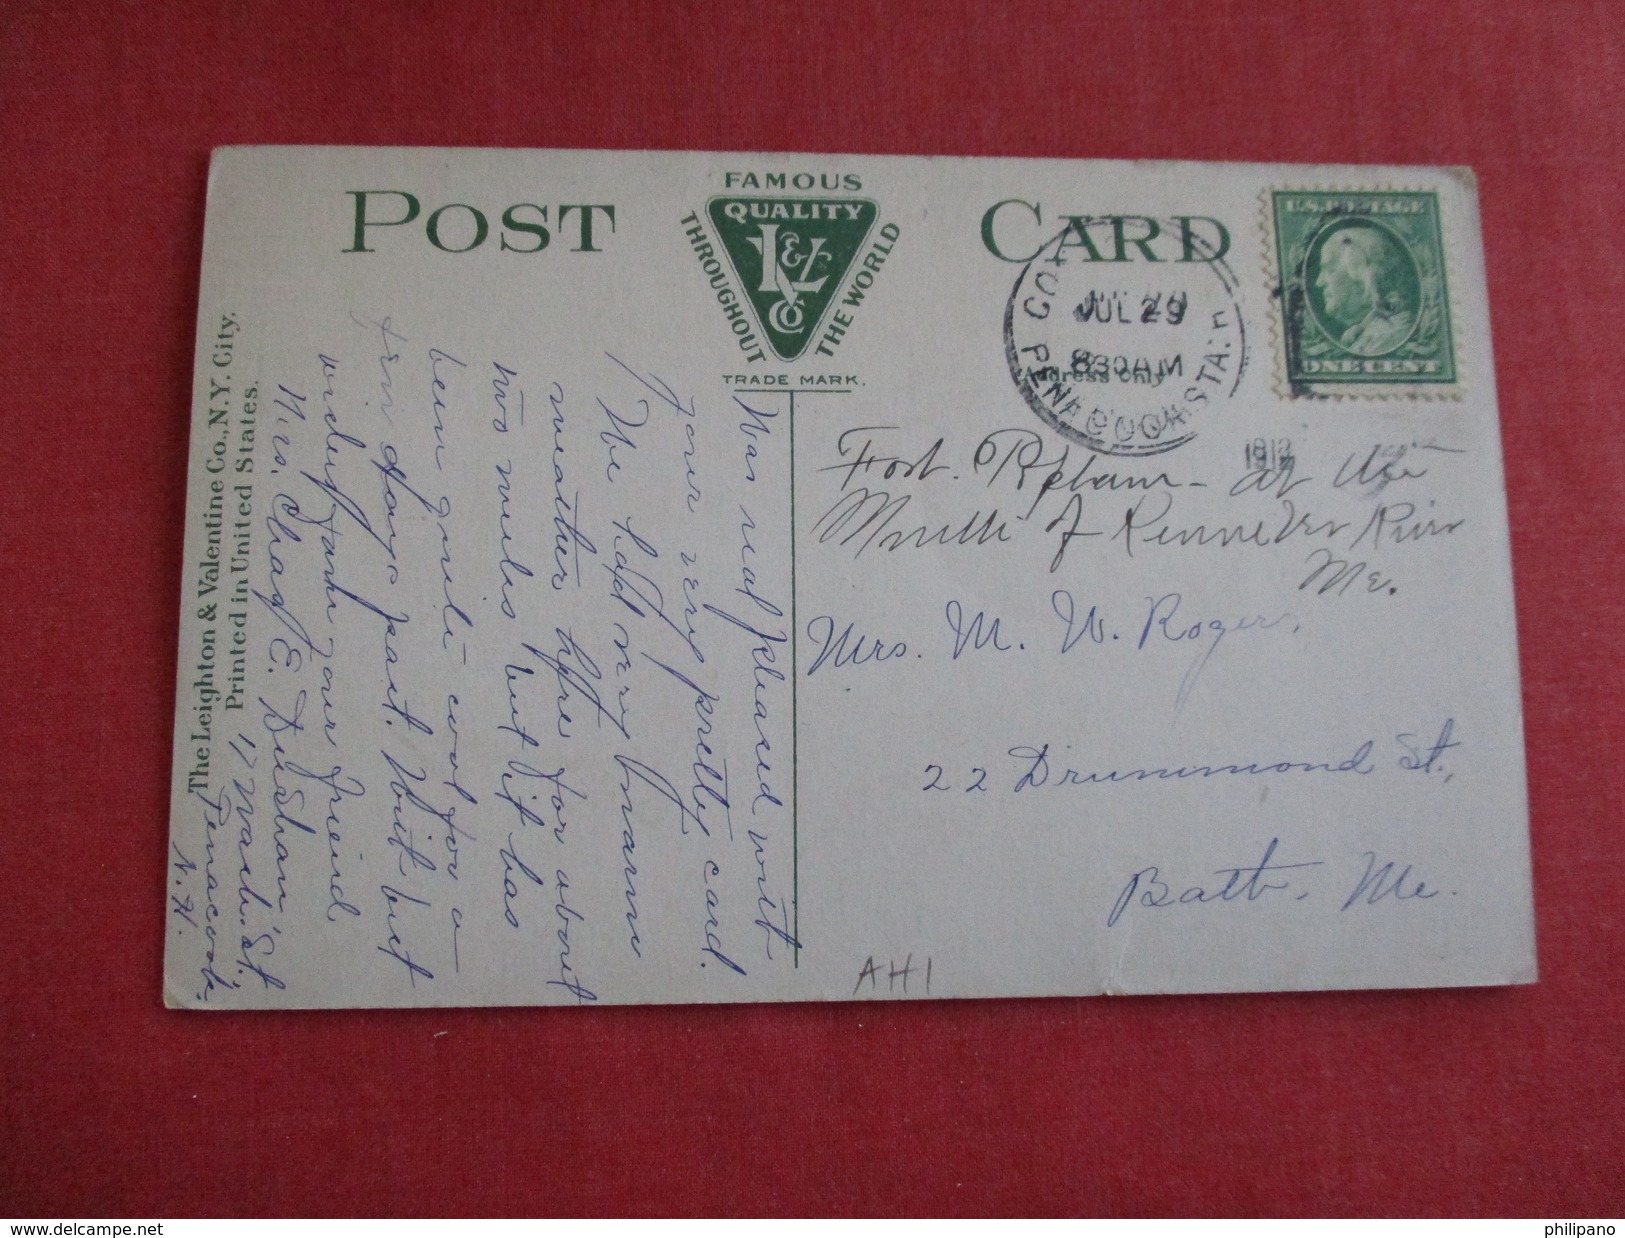 POST CARD
FAMOUS
QUALITY
THROUGHOUT
THE WORLD
L & V Co
TRADE MARK.
U.S. POSTAGE
ONE CENT
JUL 29
830AM
PENACOOK STA.
1912
Address only
Was real pleased with
your very pretty card.
We had very warm
weather here for about
two weeks but it has
been quite cool for a
few days past. Will but
thank your friend
Mrs. Chas. E.
17 Wash. St.
Penacook.
N. H.
The Leighton & Valentine Co., N.Y. City.
Printed in United States.
Fort Popham - at the
Mouth of Kennebec River
Me.
Mrs. M. W. Rogers,
22 Drummond St.,
Bath, Me.
AH1
delcampe.net
philipano